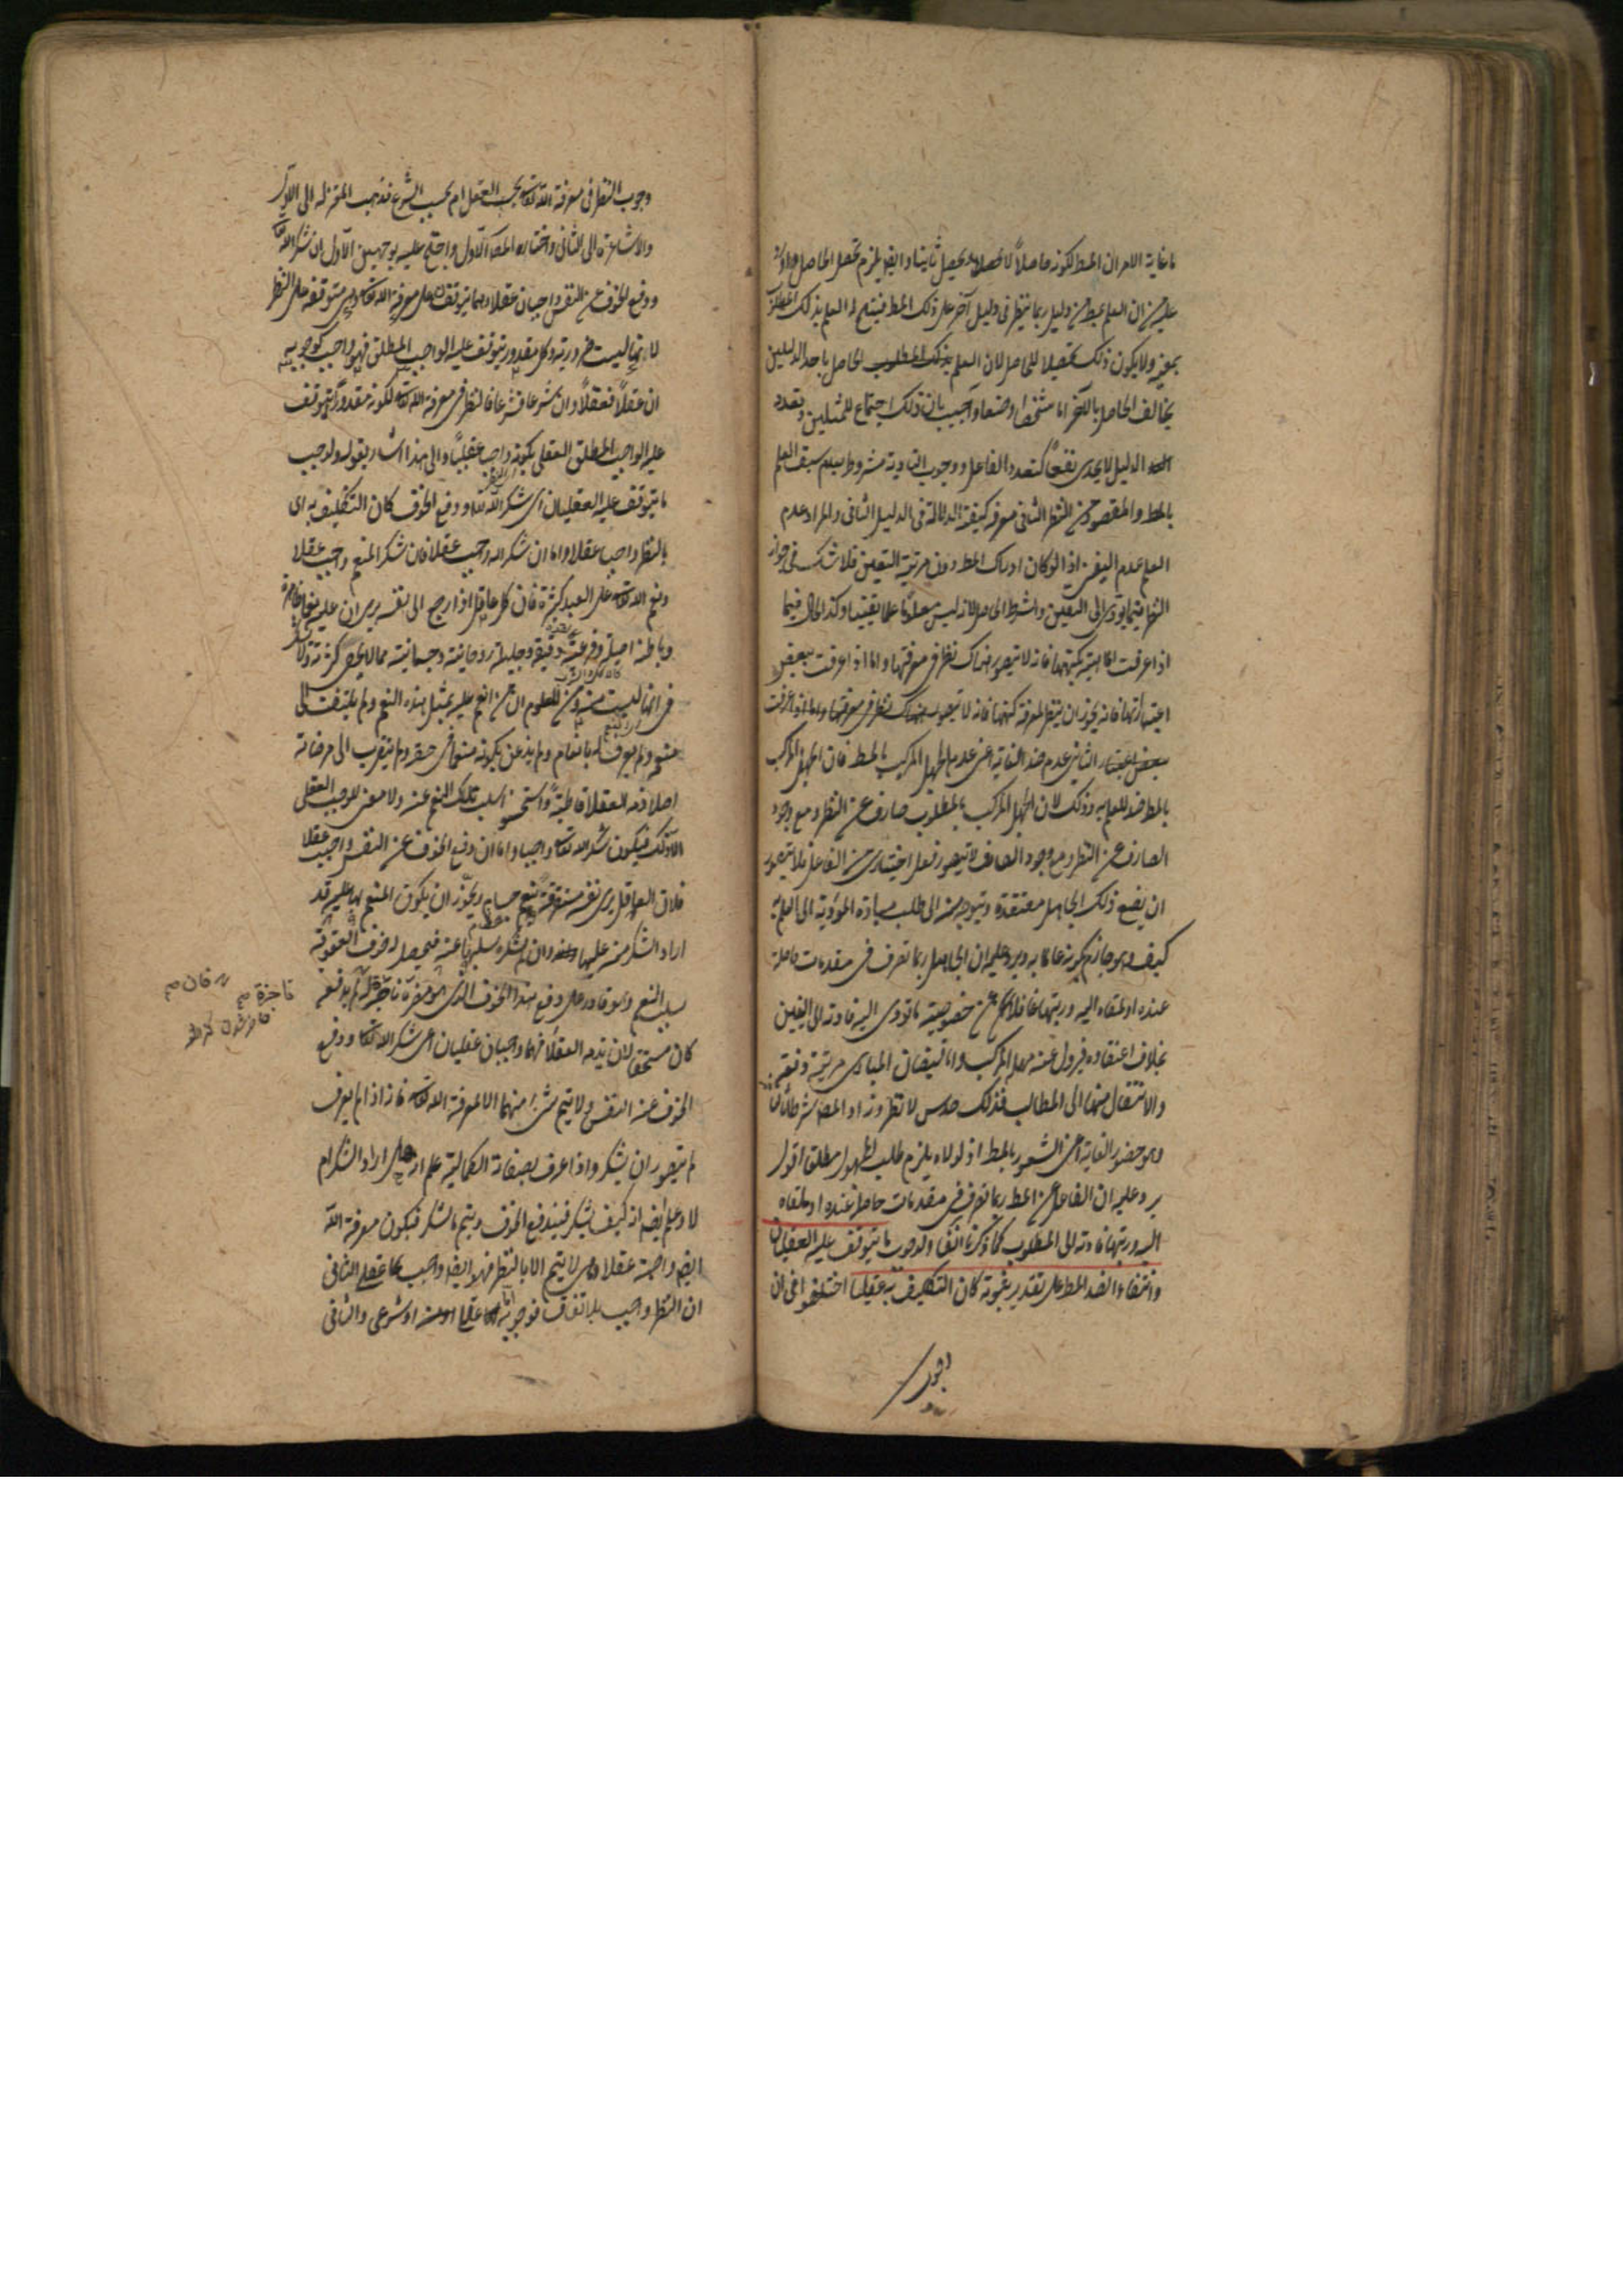 ما غاية الامر ان المط لكونه حاصلاً لا يحصل ثانيا والا يلزم تحصيل الحاصل
عليه ان العلم بمط من دليل ربما ينظر فى دليل آخر على ذلك المط فينتج له العلم بذلك المط
بعينه ولا يكون ذلك تحصيلا للحاصل لان العلم بذلك المطلوب الحاصل باحد الدليلين
يخالف الحاصل بالآخر اما شخصا او صنفا واجيب بان ذلك اجتماع للمثلين وتعدد
الدليل لا يجدى نفعا كتعدد الفاعل ووجوب التأدية مشروط بعدم سبق العلم
بالمط والمقصود من النظر الثانى معرفة كيفية الدلالة فى الدليل الثانى والمراد بعدم
العلم عدم اليقين اذ لو كان ادراك المط دون مرتبة اليقين فلا شك فى جواز
النظر فيما يؤدى الى اليقين والشرط حاصل لانه ليس معلوما علما يقينيا وكذا الحال فيما
اذا عرفت الماهية بكنهها فانه لا يتصور هناك نظر فى معرفتها واما اذا عرفت ببعض
اعتباراتها فانه يجوز ان ينظر لمعرفة كنهها فانه لا يتصور هناك نظر فى معرفتها واما اذا عرفت
بعض اعتبار الثانى عدم ضد الغاية اعنى عدم الجهل المركب بالمط فان الجهل المركب
بالمط ضد للعلم به وذلك لان الجهل المركب بالمطلوب صارف عن النظر ومع وجود
الصارف عن النظر ومع وجود الصارف لا يتصور فعل اختيارى من الفاعل فلا يتصور
ان يضع ذلك الجاهل معتقده ويتوجه منه الى طلب مباده المؤدية الى العلم به
كيف وهو جازم بكونه عالما به ويرد عليه ان الجاهل ربما تصرف فى مقدمات حاصلة
عنده او ملقاه اليه ورتبها غافلا عن خصوصية ما تؤدى اليه فادته الى اليقين
بخلاف اعتقاده فيزول عنه جهله المركب واما فيضان المبادى مرتبة دفعة
والانتقال منها الى المطالب فذلك حدس لا نظر وزاد المص شرطا ثالثا
وهو حضور الغاية اعنى الشعور بالمط اذ لولاه يلزم طلب المجهول مطلق اقول
يرد عليه ان الغافل عن المط ربما تصرف فى مقدمات حاصلة عنده او ملقاه
اليه ورتبها فادته الى المطلوب كما ذكرنا آنفا ولوجوب ما يتوقف عليه العقليان
وانتفاء الضد المط على تقدير ثبوته كان التكليف به عقليا اختلفوا فى ان
وجوب النظر فى معرفة الله تعالى بحسب العقل ام بحسب الشرع فذهب المعتزلة الى الاول
والاشاعرة الى الثانى واختار المص الاول واحتج عليه بوجهين الاول ان شكر الله تعالى
ودفع الخوف عن النفس واجبان عقلا وهما يتوقفان على معرفة الله تعالى وهى متوقفة على النظر
لانها ليست ضرورية وكل مقدور يتوقف عليه الواجب المطلق فهو واجب كوجوبه
ان عقلاً فعقلاً وان شرعا فشرعا فالنظر فى معرفة الله تعالى لكونه مقدورا يتوقف
عليه الواجب المطلق العقلى يكون واجبا عقليا والى هذا اشار بقوله ولوجوب
ما يتوقف عليه العقليان اى شكر الله تعالى ودفع الخوف كان التكليف به اى
بالنظر واجبا عقلا واما ان شكر الله واجب عقلا فان شكر المنعم واجب عقلا
ونعم الله تعالى على العبد كثيرة فان كل عاقل اذا رجع الى نفسه يرى ان عليه نعما ظاهرة
وباطنة اصلية وفرعية دقيقة وجليلة روحانية وجسمانية مما لا يحصى كثرة
فى انها ليست منه ومن المعلوم ان من انعم عليه بمثل هذه النعم ولم يلتفت الى
منعمه ولم يعرف له بانعام ولم يذعن بكونه منعما فى حقه ولم يتقرب الى مرضاته
اصلا ذمه العقلا قاطبة واستحسنوا سلب تلك النعم عنه ولا معنى للوجوب العقلى
الا ذلك فيكون شكر الله تعالى واجبا واما ان دفع الخوف عن النفس واجب عقلا
فلان العاقل يرى نفسه مستغرقة بنعم جسام ويجوز ان يكون المنعم بها عليه قد
اراد الشكر منه عليها وانه ان لم يشكره سلبها عنه فيحصل له خوف العقوبة
بسلب النعم وهو قادر على دفع هذا الخوف الذى هو مضرة ناجزة فلو لم يدفعه
كان مستحقا لان يذمه العقلا فهما واجبان عقليان اعنى شكر الله تعالى ودفع
الخوف عن النفس ولا يتم شئ منهما الا بمعرفة الله تعالى فانه اذا لم يعرف
لم يتصور ان يشكر واذا عرف بصفاته الكمالية علم انه هل اراد الشكر ام
لا وعلم ايضا انه كيف يشكر فيندفع الخوف ويتم بالشكر فيكون معرفة الله
ايضا واجبة عقلا وهى لا يتم الا بالنظر فهو ايضا واجب عقلا الثانى
ان النظر واجب بلا اتفاق فوجوبه اما عقلى او شرعى والثانى
ناجزة